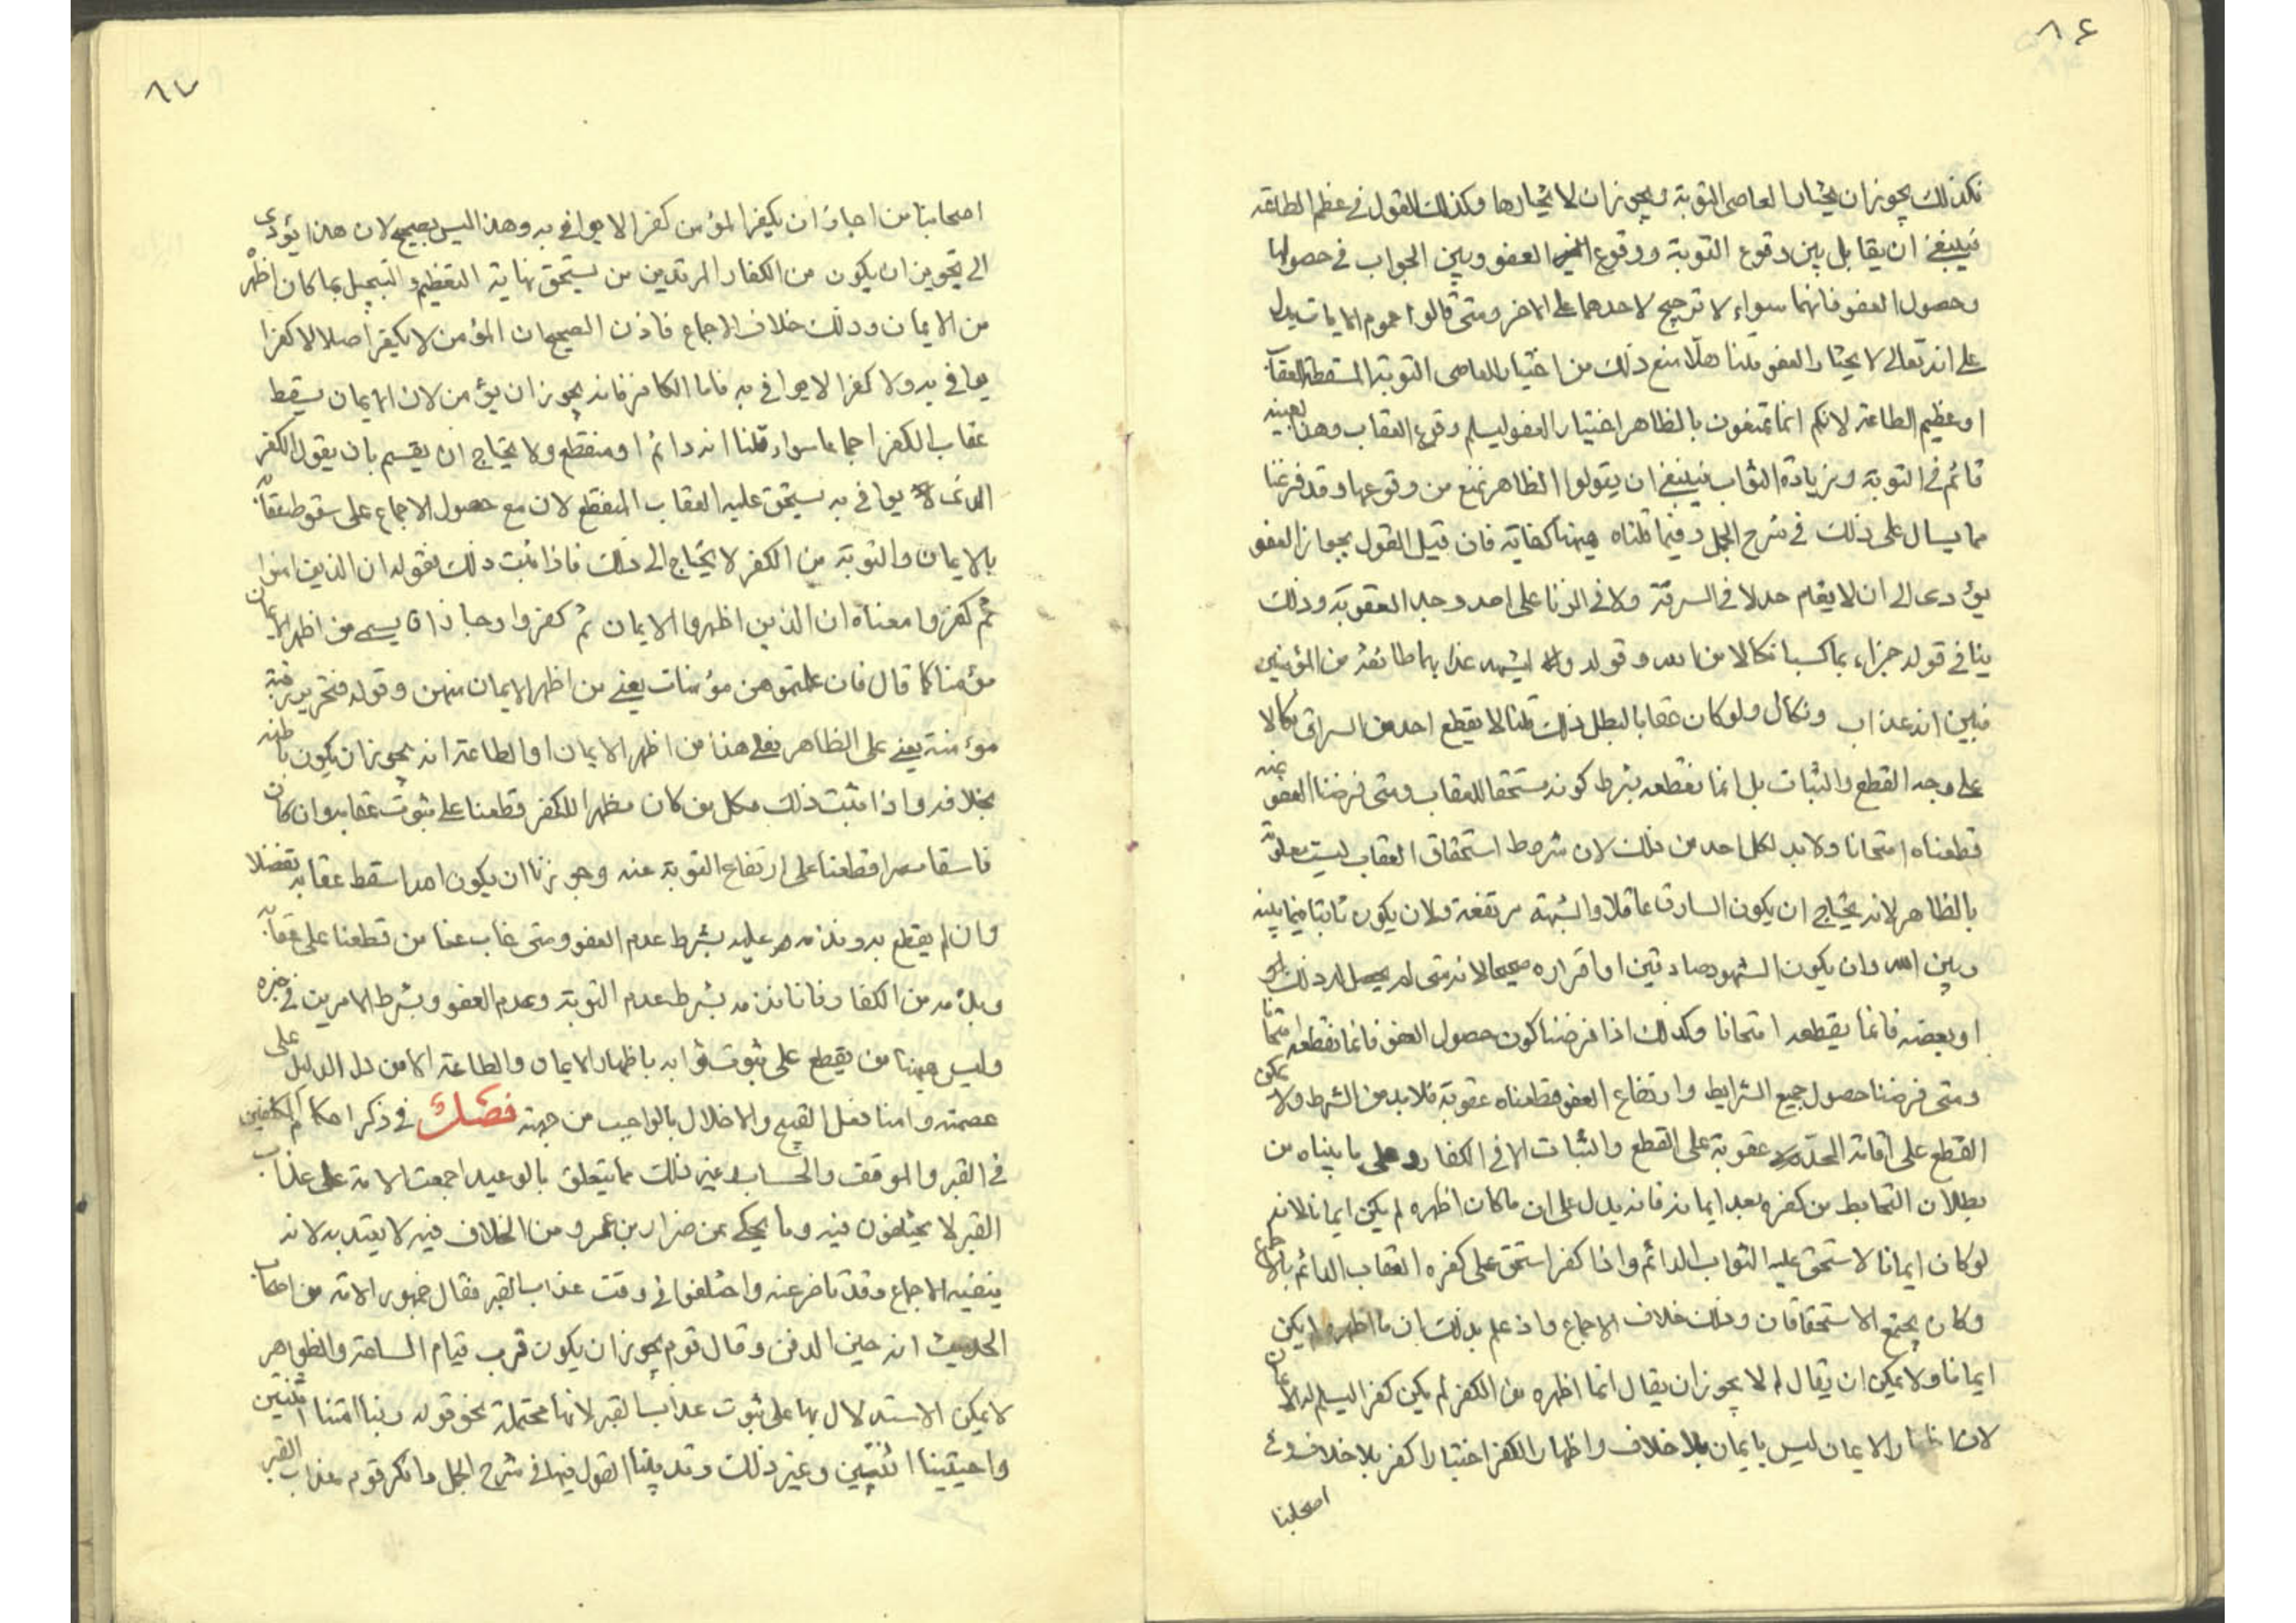 ٨٤
فكذلك يجوز ان يختار العاصى التوبة ويجوز ان لا يختارها وكذلك القول فى عظم الطاعة
فينبغى ان يقابل بين وقوع التوبة ووقوع العفو وبين الجواب فى حصولها
وحصول العفو فانهما سواء لا ترجيح لاحدهما على الاخر ومتى قالوا عموم الايات يدل
على انه تعالى لا يختار العفو قلنا هلا منع ذلك من اختيار العاصى التوبة المسقطة للعقاب
او عظيم الطاعة لانكم انما تمنعون بالظاهر اختيار العفو ليسلم وقوع العقاب وهذا بعينه
قائم فى التوبة وزيادة الثواب فينبغى ان يقولوا الظاهر تمنع من وقوعها وقد فرغنا
مما يسال على ذلك فى شرح الجمل وفيما قلناه ههنا كفاية فان قيل القول بجواز العفو
يؤدى الى ان لا يقام حد لا فى السرقة ولا فى الزنا على احد وجه العقوبة وذلك
ينافى قوله جزاء بما كسبا نكالا من الله وقوله وليشهد عذابهما طائفة من المؤمنين
فبين انه عذاب ونكال ولو كان عقابا لبطل ذلك قلنا لا يقطع احد من السراق نكالا
على وجه القطع والثبات بل انما نقطعه بشرط كونه مستحقا للعقاب ومتى فرضنا العفو عنه
قطعناه امتحانا ولا بد لكل احد من ذلك لان شروط استحقاق العقاب ليست معلومة
بالظاهر لانه يحتاج ان يكون السارق عاقلا والشبهة مرتفعة ولان يكون ثابتا فيما بينه
وبين الله وان يكون الشهود صادقين او اقراره صحيحا لانه متى لم يحصل له ذلك
او بعضه فانما يقطعه امتحانا وكذلك اذا فرضنا كون حصول العفو فانما نقطعه امتحانا
ومتى فرضنا حصول جميع الشرايط وارتفاع العفو قطعناه عقوبة فلا بد من الشرط ولا يمكن
القطع على اقامة الحد عقوبة على القطع والثبات الا فى الكفار وعلى ما بيناه من
بطلان التحابط من كفره بعد ايمانه فانه يدل على ان ما كان اظهره لم يكن ايمانا لانه
لو كان ايمانا لاستحق عليه الثواب الدائم واذا كفر استحق على كفره العقاب الدائم بالاجماع
وكان يجتمع الاستحقاقان وذلك خلاف الاجماع واذ علم بذلك ان ما اظهره لم يكن
ايمانا ولا يمكن ان يقال لم لا يجوز ان يقال انما اظهره من الكفر لم يكن كفرا ليسلم له الايمان
لان اظهار الايمان ليس بايمان بلا خلاف واظهار الكفر اختيارا كفر بلا خلاف وفى
اصحابنا
٨٧
اصحابنا من اجاز ان يكفر المؤمن كفرا لا يوافى به وهذا ليس بصحيح لان هذا يؤدى
الى تجويز ان يكون من الكفار المرتدين من يستحق نهاية التعظيم والتبجيل بما كان اظهر
من الايمان وذلك خلاف الاجماع فاذن الصحيح ان المؤمن لا يكفر اصلا لا كفرا
يوافى به ولا كفرا لا يوافى به فاما الكافر فانه يجوز ان يؤمن لان الايمان يسقط
عقاب الكفر اجماعا سواء قلنا انه دائم او منقطع ولا يحتاج ان يقسم بان يقول الكفر
الذى لا يوافى به يستحق عليه العقاب المنقطع لان مع حصول الاجماع على سقوط عقابه
بالايمان والتوبة من الكفر لا يحتاج الى ذلك فاذا ثبت ذلك فقوله ان الذين امنوا
ثم كفروا معناه ان الذين اظهروا الايمان ثم كفروا وجاز ذا قا يسمى من اظهر الايمان
مؤمنا كما قال فان علمتموهن مؤمنات يعنى من اظهر الايمان منهن وقوله فتحرير رقبة
مؤمنة يعنى على الظاهر فعلى هذا من اظهر الايمان او الطاعة انه يجوز ان يكون باطنه
بخلافه واذا ثبت ذلك فكل من كان مظهرا للكفر قطعنا على ثبوت عقابه وان كان
فاسقا مصرا قطعنا على ارتفاع التوبة عنه وجوزنا ان يكون الله اسقط عقابه تفضلا
وان لم يقطع به ونذمه عليه بشرط عدم العفو ومتى غاب عنا من قطعنا على عقابه
وبذمه من الكفار فانا نذمه بشرط عدم التوبة وعدم العفو وبشرط الامرين فى غيره
وليس ههنا من يقطع على ثبوت ثوابه باظهار الايمان والطاعة الا من دل الدليل على
عصمته وامنا فعل القبيح والاخلال بالواجب من جهته فصل فى ذكر احكام المكلفين
فى القبر والموقف والحساب وغير ذلك مما يتعلق بالوعيد اجمعت الامة على عذاب
القبر لا يختلفون فيه وما يحكى عن ضرار بن عمرو من الخلاف فيه لا يعتد به لانه
ينفيه الاجماع وقد تاخر عنه واختلفوا فى وقت عذاب القبر فقال جمهور الامة من اصحاب
الحديث انه حين الدفن وقال قوم يجوز ان يكون قرب قيام الساعة والظواهر
لا يمكن الاستدلال بها على ثبوت عذاب القبر لانها محتملة نحو قوله ربنا امتنا اثنتين
واحييتنا اثنتين وغير ذلك وقد بينا القول فيها فى شرح الجمل وانكر قوم عذاب القبر